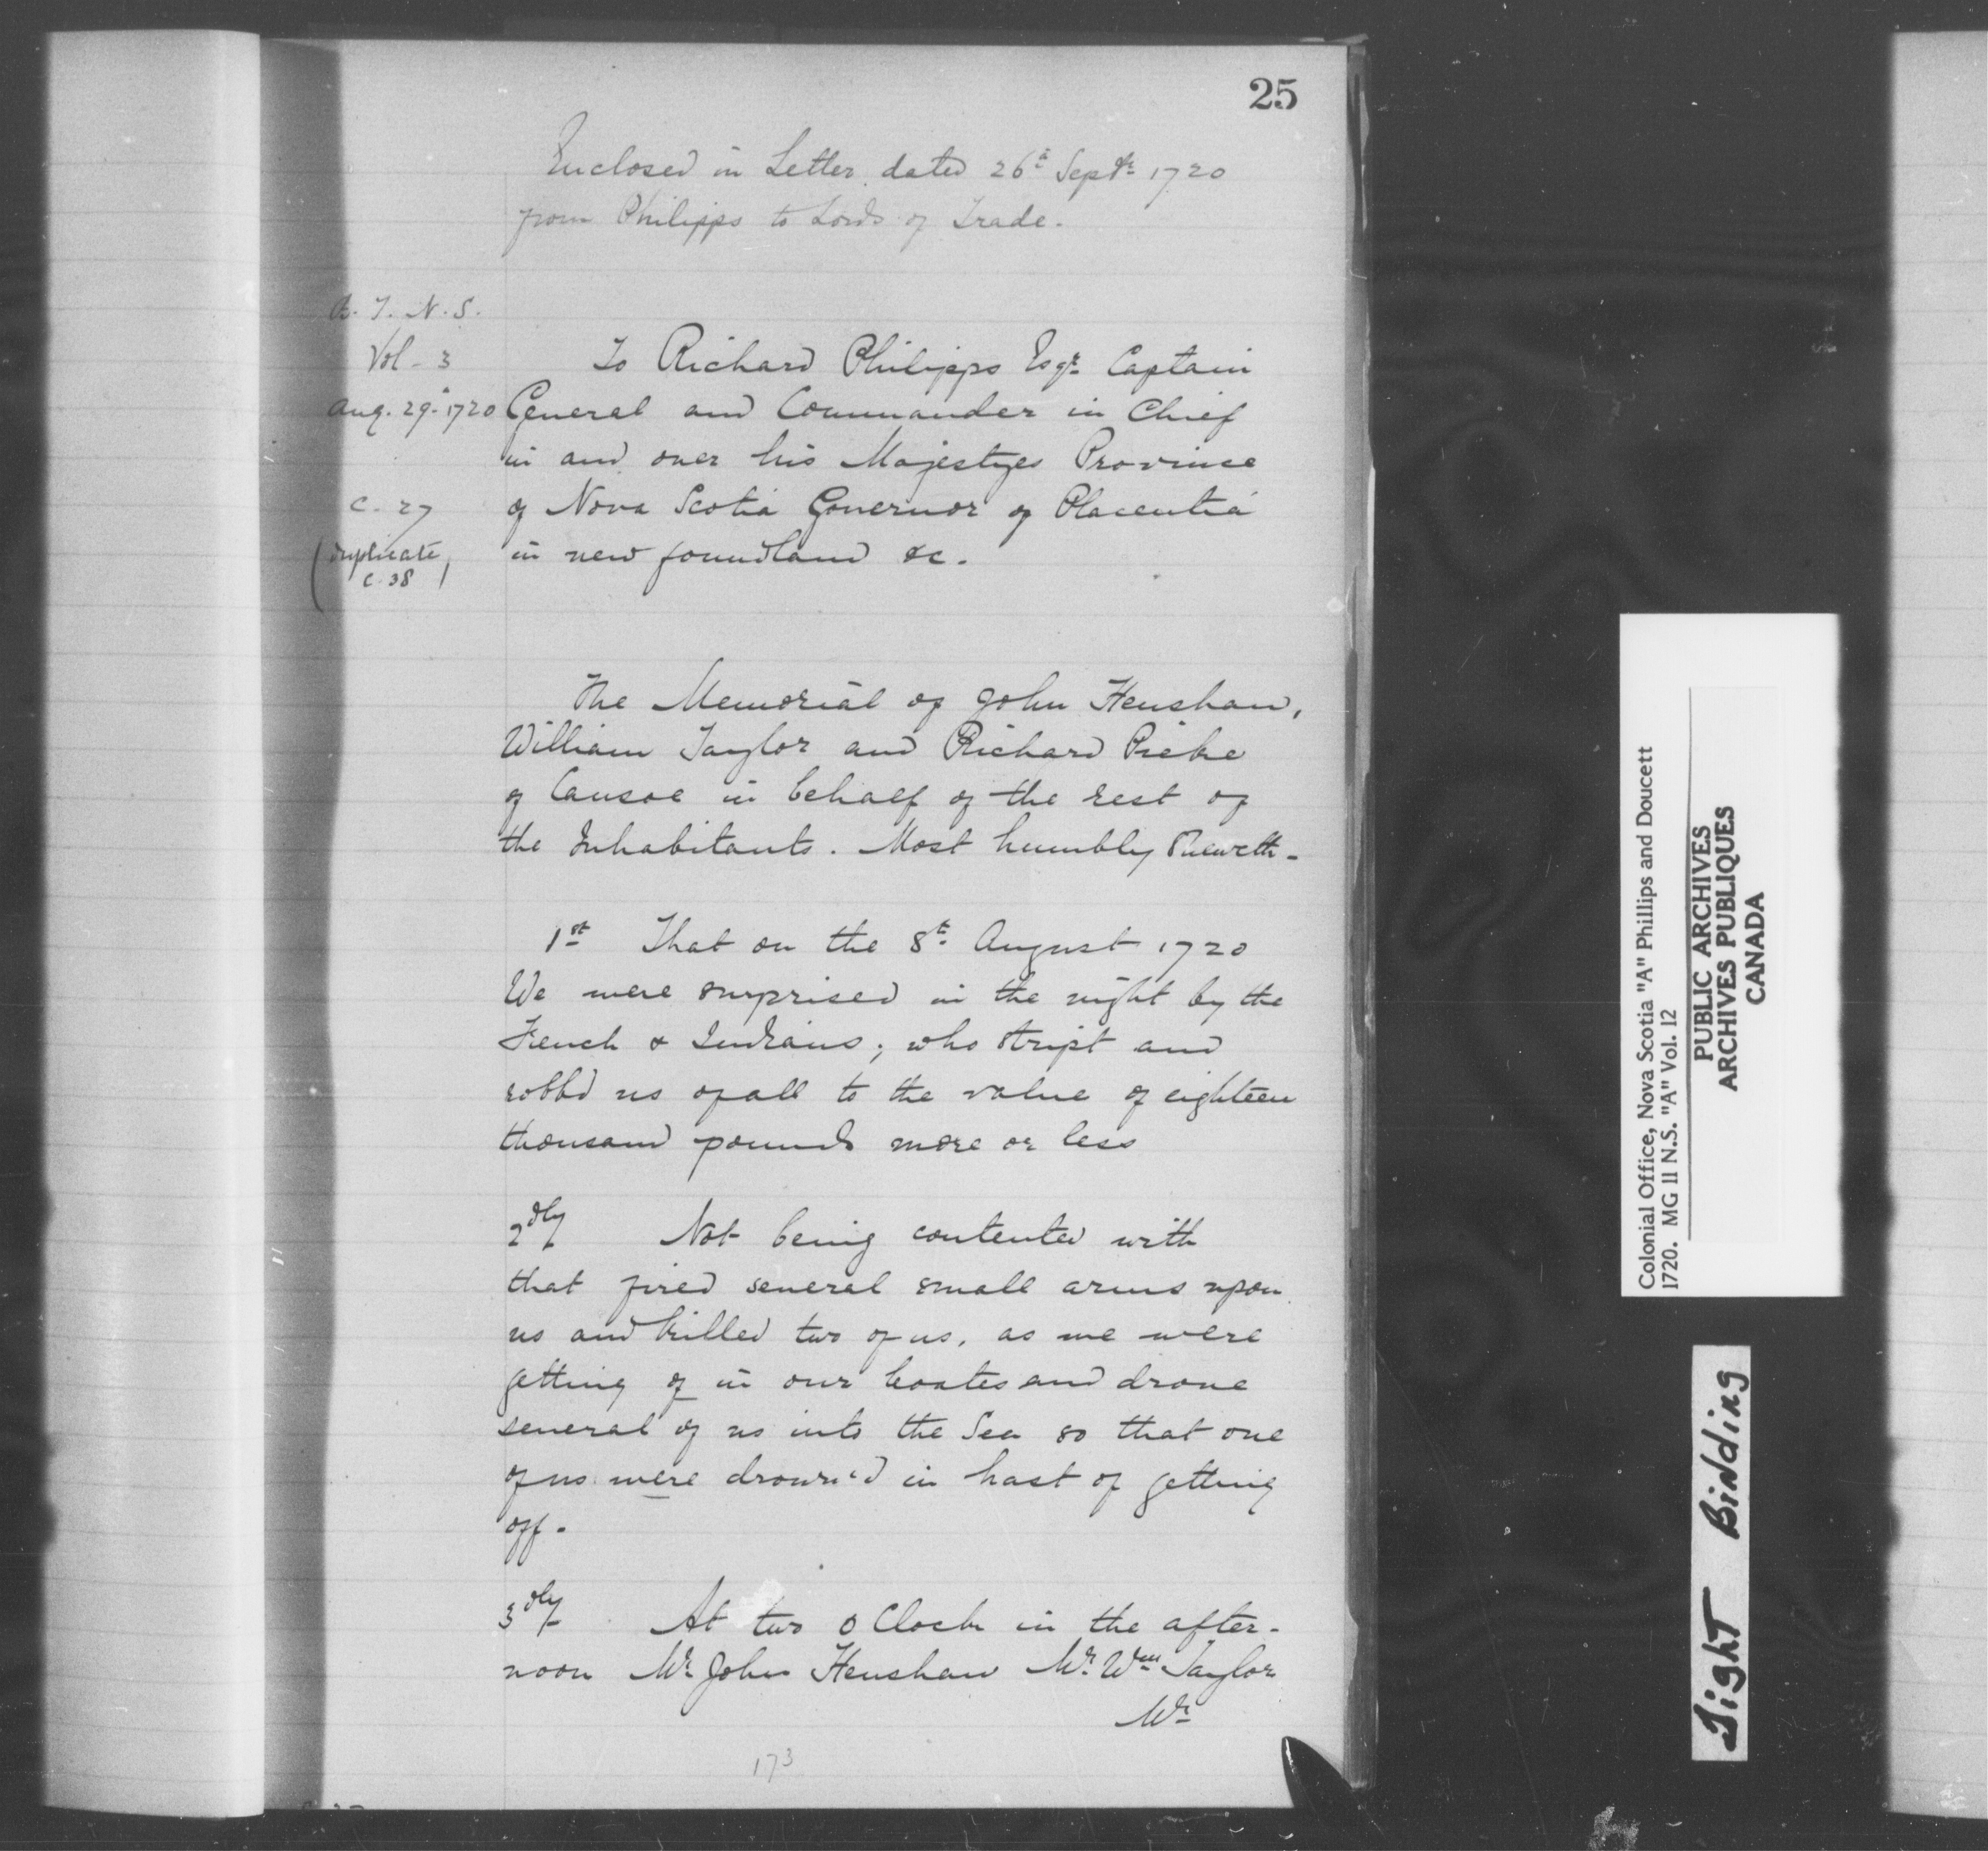 25
Enclosed in Letter dated 26th Septr 1720
from Philipps to Lords of Trade.
B. T. N. S.
Vol - 3
Aug. 29th 1720
C. 27
(duplicate
C. 38)
To Richard Philipps Esqr Captain
General and Commander in Chief
in and over his Majestyes Province
of Nova Scotia Governor of Placentia
in new foundland &c.
The Memorial of John Henshaw,
William Taylor and Richard Pieke
of Cansoe in behalf of the rest of
the Inhabitants. Most humbly Sheweth -
1st That on the 8th August 1720
We were surprised in the night by the
French & Indians; who stript and
robbd us of all to the value of eighteen
thousand pounds more or less
2dly Not being contented with
that fired several small arms upon
us and killed two of us, as we were
getting of in our boates and drove
several of us into the Sea so that one
of us were drown'd in hast of getting
off.
3dly At two o Clock in the after-
noon Mr John Henshaw Mr Wm Taylor
Mr
173
Colonial Office, Nova Scotia "A" Phillips and Doucett
1720. MG 11 N.S. "A" Vol. 12
PUBLIC ARCHIVES
ARCHIVES PUBLIQUES
CANADA
Tight Binding